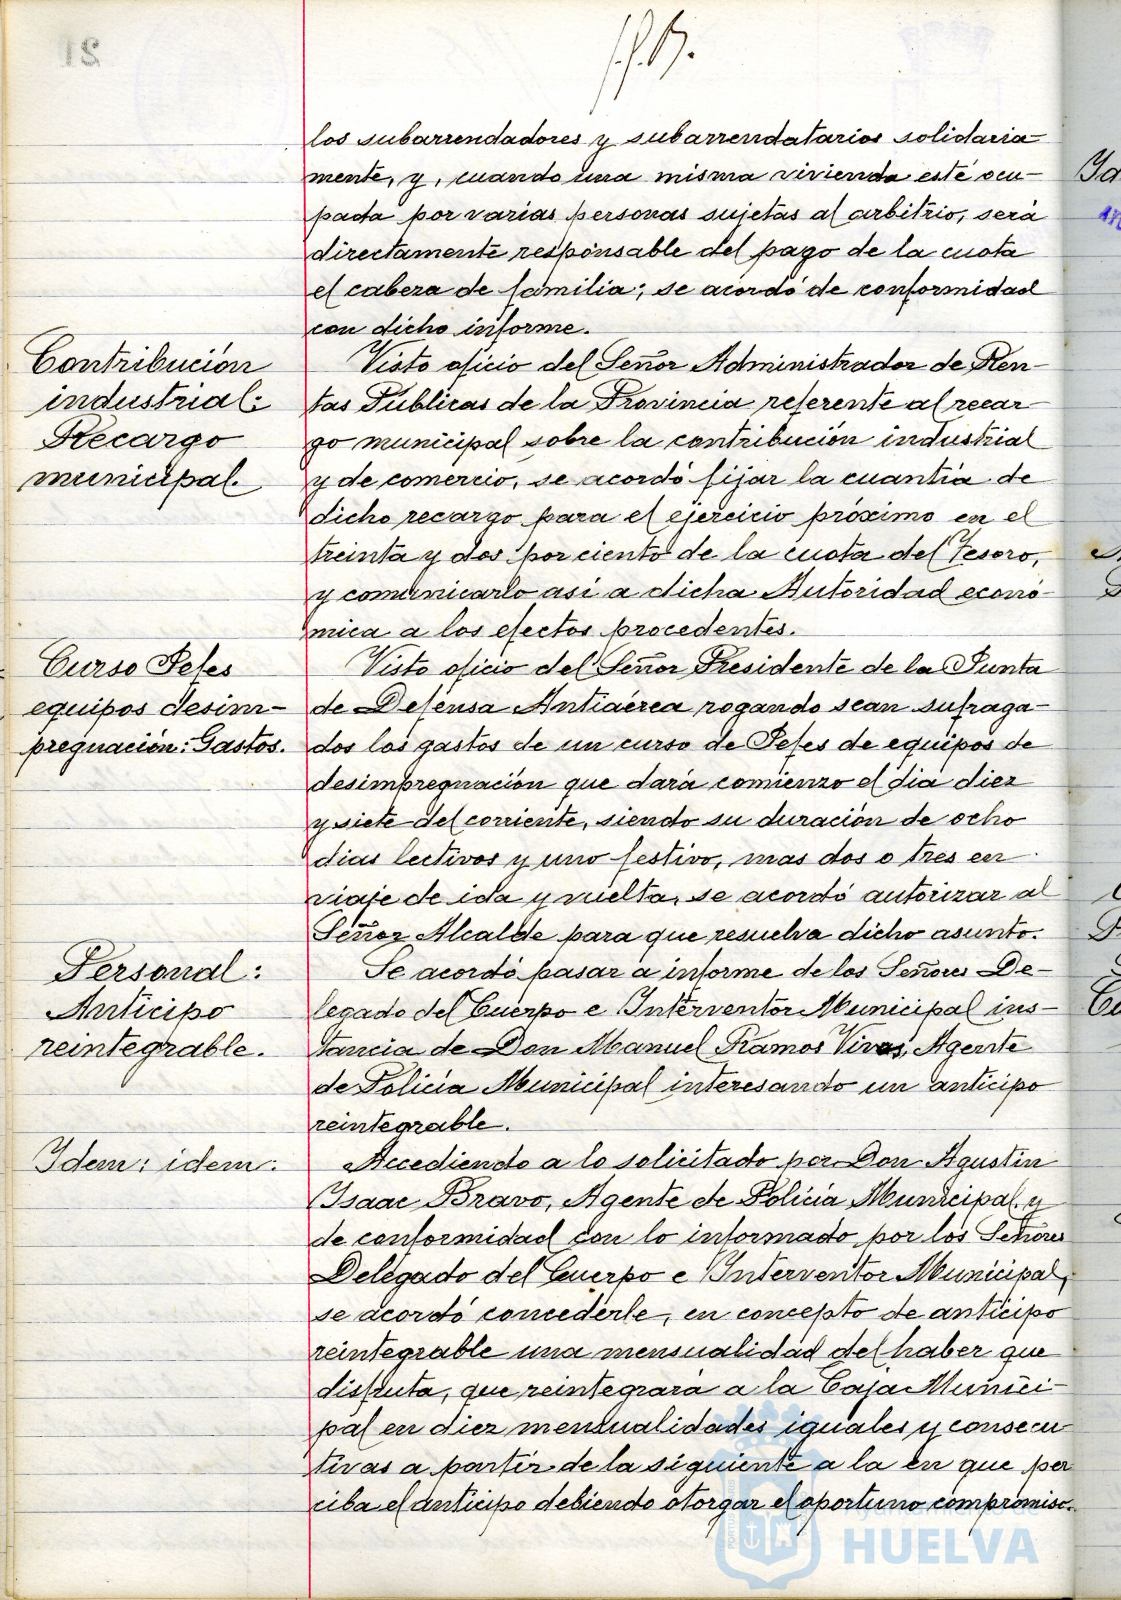 los subarrendadores y subarrendatarios solidaria-
mente, y, cuando una misma vivienda esté ocu-
pada por varias personas sujetas al arbitrio, será
directamente responsable del pago de la cuota
el cabeza de familia; se acordó de conformidad
con dicho informe.
Contribución
industrial:
Recargo
municipal.
Visto oficio del Señor Administrador de Ren-
tas Públicas de la Provincia referente al recar-
go municipal sobre la contribución industrial
y de comercio, se acordó fijar la cuantía de
dicho recargo para el ejercicio próximo en el
treinta y dos por ciento de la cuota del Tesoro,
y comunicarlo así a dicha Autoridad econó-
mica a los efectos procedentes.
Curso Jefes
equipos desim-
pregnación: Gastos.
Visto oficio del Señor Presidente de la Junta
de Defensa Antiaérea rogando sean sufraga-
dos los gastos de un curso de Jefes de equipos de
desimpregnación que dará comienzo el día diez
y siete del corriente, siendo su duración de ocho
días lectivos y uno festivo, mas dos o tres en
viaje de ida y vuelta, se acordó autorizar al
Señor Alcalde para que resuelva dicho asunto.
Personal:
Anticipo
reintegrable.
Se acordó pasar a informe de los Señores De-
legado del Cuerpo e Interventor Municipal ins-
tancia de Don Manuel Ramos Vivas, Agente
de Policía Municipal interesando un anticipo
reintegrable.
Idem: idem:
Accediendo a lo solicitado por Don Agustín
Isaac Bravo, Agente de Policía Municipal, y
de conformidad con lo informado por los Señores
Delegado del Cuerpo e Interventor Municipal,
se acordó concederle, en concepto de anticipo
reintegrable una mensualidad del haber que
disfruta, que reintegrará a la Caja Munici-
pal en diez mensualidades iguales y consecu-
tivas a partir de la siguiente a la en que per
ciba el anticipo debiendo otorgar el oportuno compromiso.
Ayuntamiento de
HUELVA